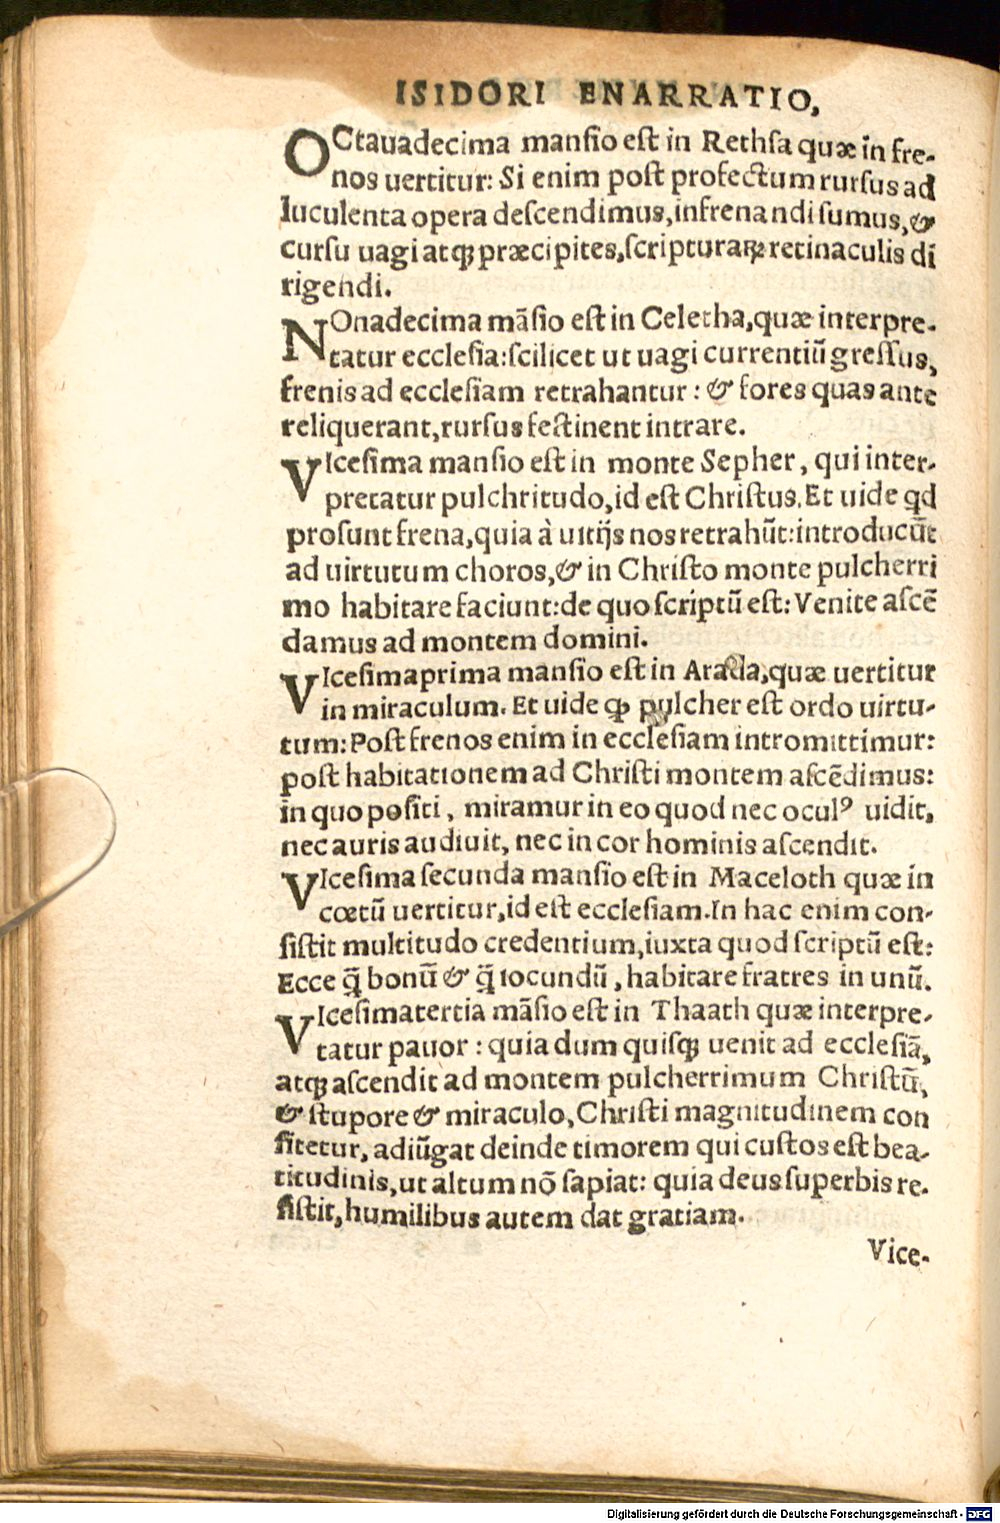 ISIDORI ENARRATIO,
OCtauadecima mansio est in Rethsa quæ in fre-
nos uertitur: Si enim post profectum rursus ad
luculenta opera descendimus, infrenandi sumus, &
cursu uagi atqꝫ præcipites, scripturaꝝ retinaculis di
rigendi.
NOnadecima mãsio est in Celetha, quæ interpre-
tatur ecclesia: scilicet ut uagi currentiũ gressus,
frenis ad ecclesiam retrahantur: & fores quas ante
reliquerant, rursus festinent intrare.
VIcesima mansio est in monte Sepher, qui inter-
pretatur pulchritudo, id est Christus. Et uide qd
prosunt frena, quia à uitijs nos retrahũt: introducũt
ad uirtutum choros, & in Christo monte pulcherri
mo habitare faciunt: de quo scriptũ est: Venite ascẽ
damus ad montem domini.
VIcesimaprima mansio est in Arada, quæ uertitur
in miraculum. Et uide ꝙ pulcher est ordo uirtu-
tum: Post frenos enim in ecclesiam intromittimur:
post habitationem ad Christi montem ascẽdimus:
in quo positi, miramur in eo quod nec oculꝰ uidit,
nec auris audiuit, nec in cor hominis ascendit.
VIcesima secunda mansio est in Maceloth quæ in
cœtũ uertitur, id est ecclesiam. In hac enim con-
sistit multitudo credentium, iuxta quod scriptũ est:
Ecce q̃ bonũ & q̃ iocundũ, habitare fratres in unũ.
VIcesimatertia mãsio est in Thaath quæ interpre-
tatur pauor: quia dum quisqꝫ uenit ad ecclesiã,
atqꝫ ascendit ad montem pulcherrimum Christũ,
& stupore & miraculo, Christi magnitudinem con
fitetur, adiũgat deinde timorem qui custos est bea-
titudinis, ut altum nõ sapiat: quia deus superbis re-
sistit, humilibus autem dat gratiam.
Vice-
Digitalisierung gefördert durch die Deutsche Forschungsgemeinschaft - DFG